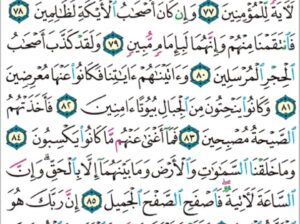 لَآيَةً لِّلْمُؤْمِنِينَ ٧٧ وَإِن كَانَ أَصْحَٰبُ ٱلْأَيْكَةِ لَظَٰلِمِينَ ٧٨
فَٱنتَقَمْنَا مِنْهُمْ وَإِنَّهُمَا لَبِإِمَامٍ مُّبِينٍ ٧٩ وَلَقَدْ كَذَّبَ أَصْحَٰبُ
ٱلْحِجْرِ ٱلْمُرْسَلِينَ ٨٠ وَءَاتَيْنَٰهُمْ ءَايَٰتِنَا فَكَانُوا۟ عَنْهَا مُعْرِضِينَ
٨١ وَكَانُوا۟ يَنْحِتُونَ مِنَ ٱلْجِبَالِ بُيُوتًا ءَامِنِينَ ٨٢ فَأَخَذَتْهُمُ
ٱلصَّيْحَةُ مُصْبِحِينَ ٨٣ فَمَآ أَغْنَىٰ عَنْهُم مَّا كَانُوا۟ يَكْسِبُونَ ٨٤
وَمَا خَلَقْنَا ٱلسَّمَٰوَٰتِ وَٱلْأَرْضَ وَمَا بَيْنَهُمَآ إِلَّا بِٱلْحَقِّ ۗ وَإِنَّ
ٱلسَّاعَةَ لَآتِيَةٌ ۖ فَٱصْفَحِ ٱلصَّفْحَ ٱلْجَمِيلَ ٨٥ إِنَّ رَبَّكَ هُوَ